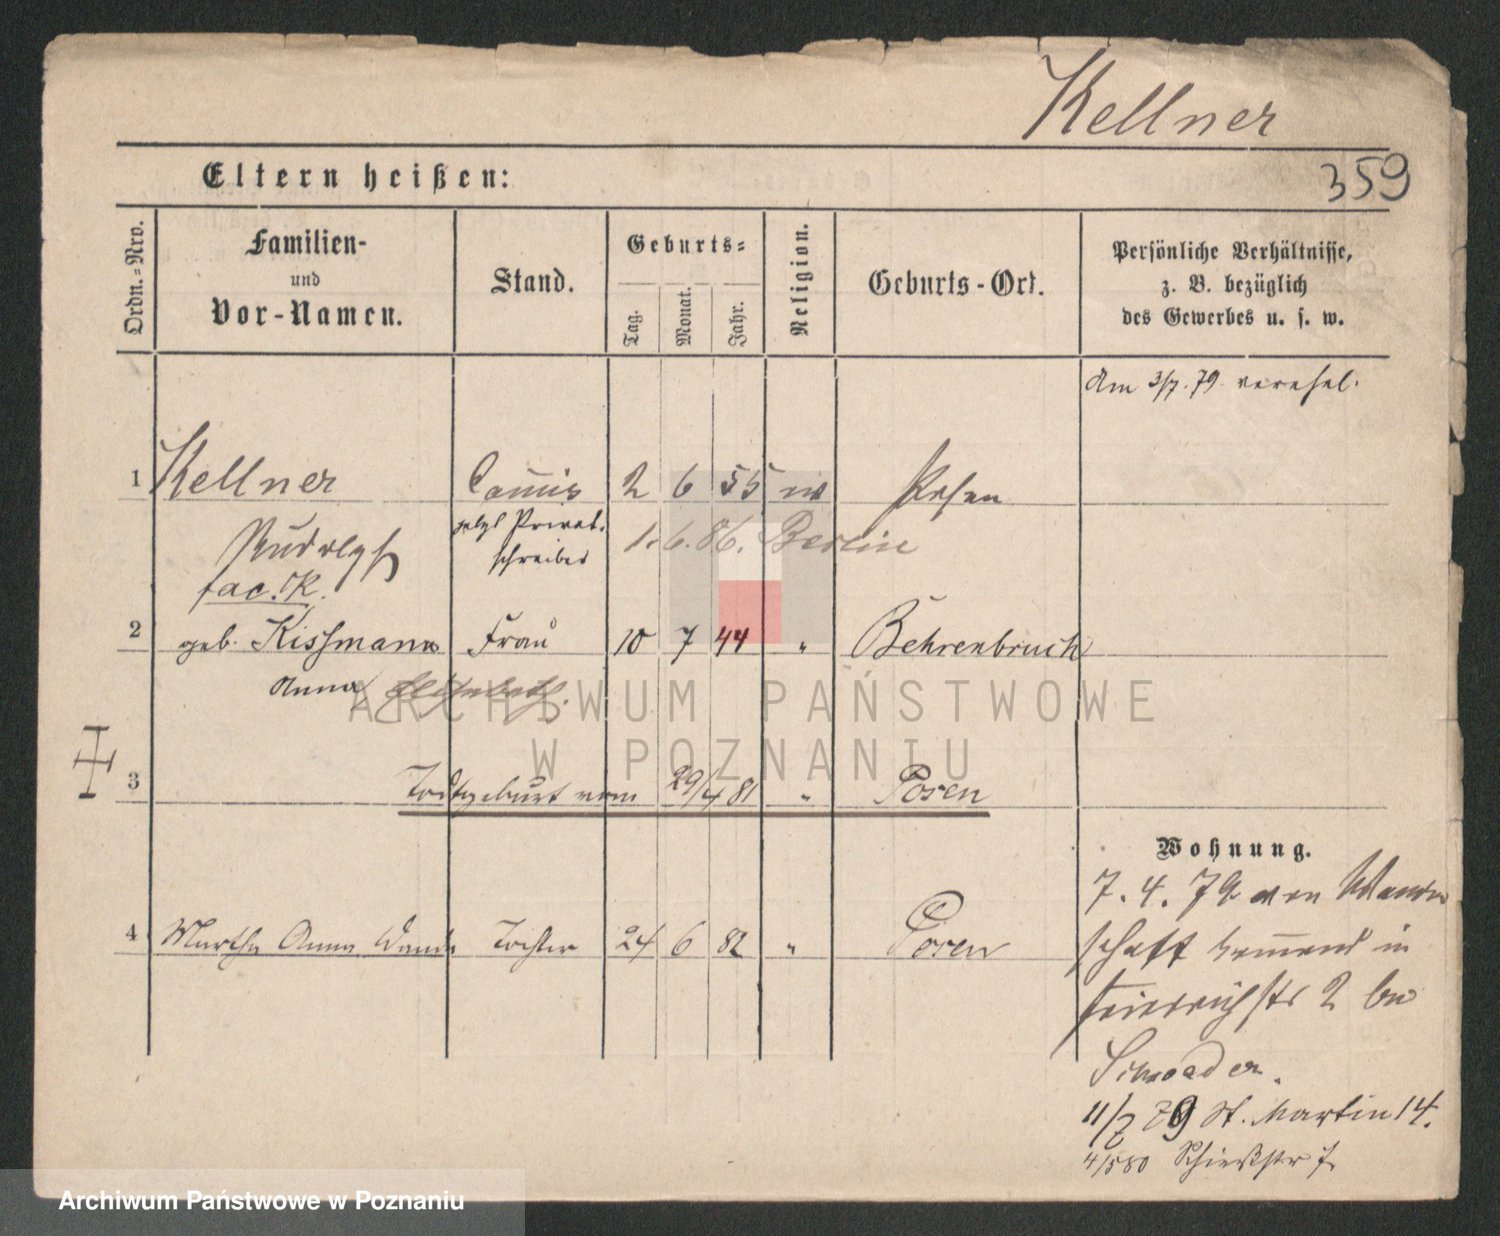 Kellner
359
Eltern heißen:
Ordn.-Nro.
Familien-
und
Vor-Namen.
Stand.
Geburts-
Tag.
Monat.
Jahr.
Religion.
Geburts-Ort.
Persönliche Verhältnisse,
z. B. bezüglich
des Gewerbes u. s. w.
Am 3/7. 79. verehel.
1 Kellner Commis 2 6 55 Posen
Rudolph jetzt Privat-
schreiber
1. 6. 86. Berlin
2 geb. Kissmann Frau 10 7 44 " Behrenbruch
Anna
3 Todtgeburt vom 29/4 81 " Posen
Wohnung.
4 Martha Anna Wanda Tochter 24 6 82 " Posen
7. 4. 79 von Wander
schaft kommend in
Friedrichstr 2 bei
11/7 79 St. Martin 14.
4/5 80 Schießstr 7
ARCHIWUM PAŃSTWOWE
W POZNANIU
Archiwum Państwowe w Poznaniu